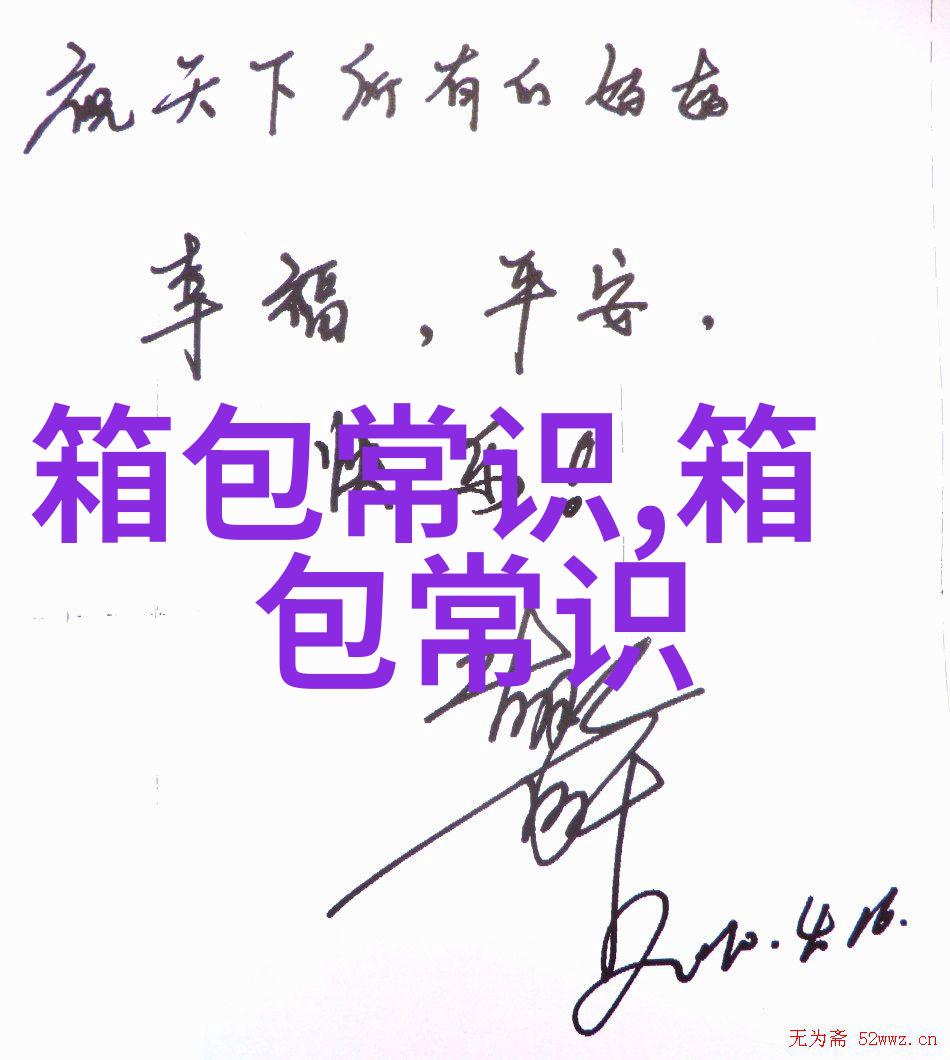 祝天下所有的妈妈
幸福，平安，
快乐！
箱包常识,箱
包常识
2010.4.16.
无为斋 52wwz.cn